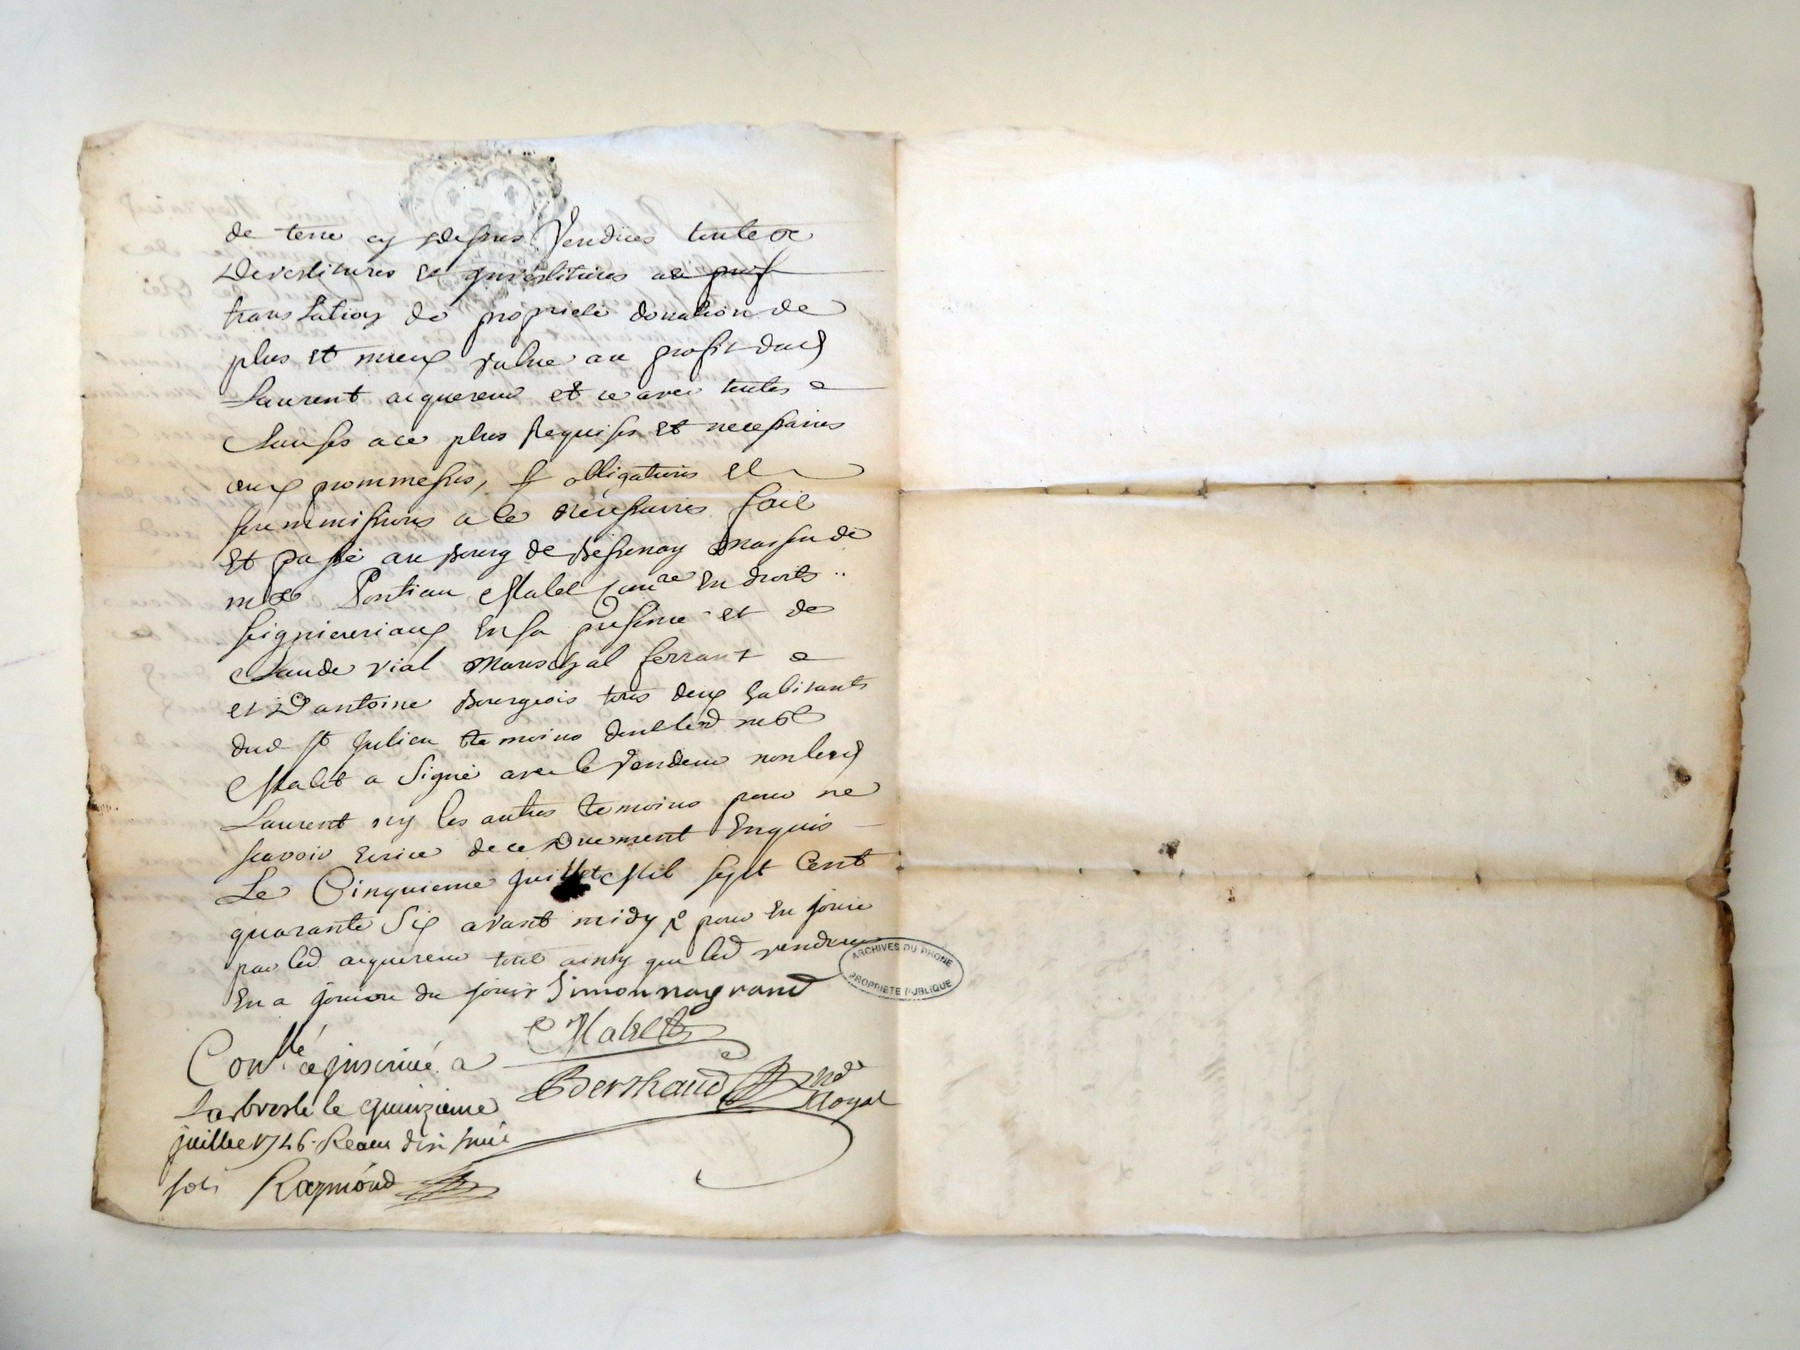 de terre cy dessus Vendües toutte
Devestitures et investitures
translation de proprieté donation de
plus et mieux value au profit dud
Laurent acquereur et ce avec toutes
Clauses a ce plus Requises et necessaires
aux prommesses, obligations et
soummissions a ce necessaires fait
Et passé au Bourg de Bessenay maison de
me Pontian Malet en droits
seigneuriaux En sa presence et de
Claude vial Mareschal ferrant
et D'antoine Bourgeois tous deux habitants
dud St Julien temoins dont led
Malet a Signé avec le Vendeur non led
Laurent ny les autres temoins pour ne
scavoir Ecrire de ce Duement Enquis
Le Cinquieme juillet Mil sept Cent
quarante Six avant midy & pour En jouir
par led acquereur tout ainsy que led vendeur
En a joui ou du jouir Simon nayrand
Malet
Conllé et jnsinué a
Berthaud nore Royal
Larbresle le quinzieme
juillet 1746. Receu dix
sols Raymond
ARCHIVES DU RHONE
PROPRIETE PUBLIQUE